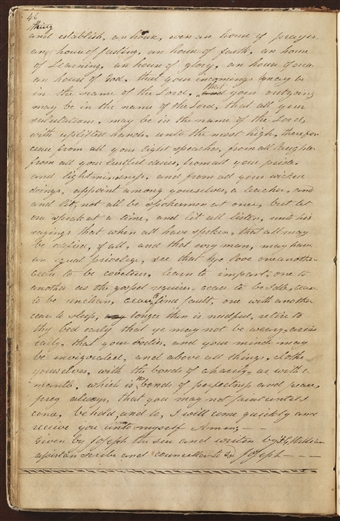 46
thing
and establish, an house, even an house of prayer
an house of fasting, an house of faith, an house
of Learning, an house of glory, an house of
an house of God, that your incomings may be
in the name of the Lord, that your outgoing
may be in the name of the Lord, that all your
salutations, may be in the name of the Lord,
with uplifted hands unto the most high, therefor
cease from all your light speeches, from all laughter
from all your lustful desires, from all your pride
and light mindedness, and from all your wicked
doings, appoint among yourselves, a teacher, and
and let, not all be spokesmen at once, but let
one speak at a time, and let all listen, unto his
sayings that when all have spoken, that all may
be edified, of all, and that every man, may have
an equal privelege, see that ye love one another
cease to be covetous, learn to impart, one to
another as the gospel requires. cease to be idle, cease
to be unclean, cease to find fault, one with another
cease to sleep, longer than is needful, retire to
thy bed early, that ye may not be weary, arise
early, that your bodies, and your minds may
be invigorated, and above all things, clothe
yourselves, with the bonds of charity, as with a
mantle, which is the bonds of perfectness and peace,
pray always, that you may not faint untill I
come, behold and lo, I will come quickly and
receive you unto myself Amen
Given by Joseph the seer and written by F G Williams
assistant scribe and counseller to Sd Joseph